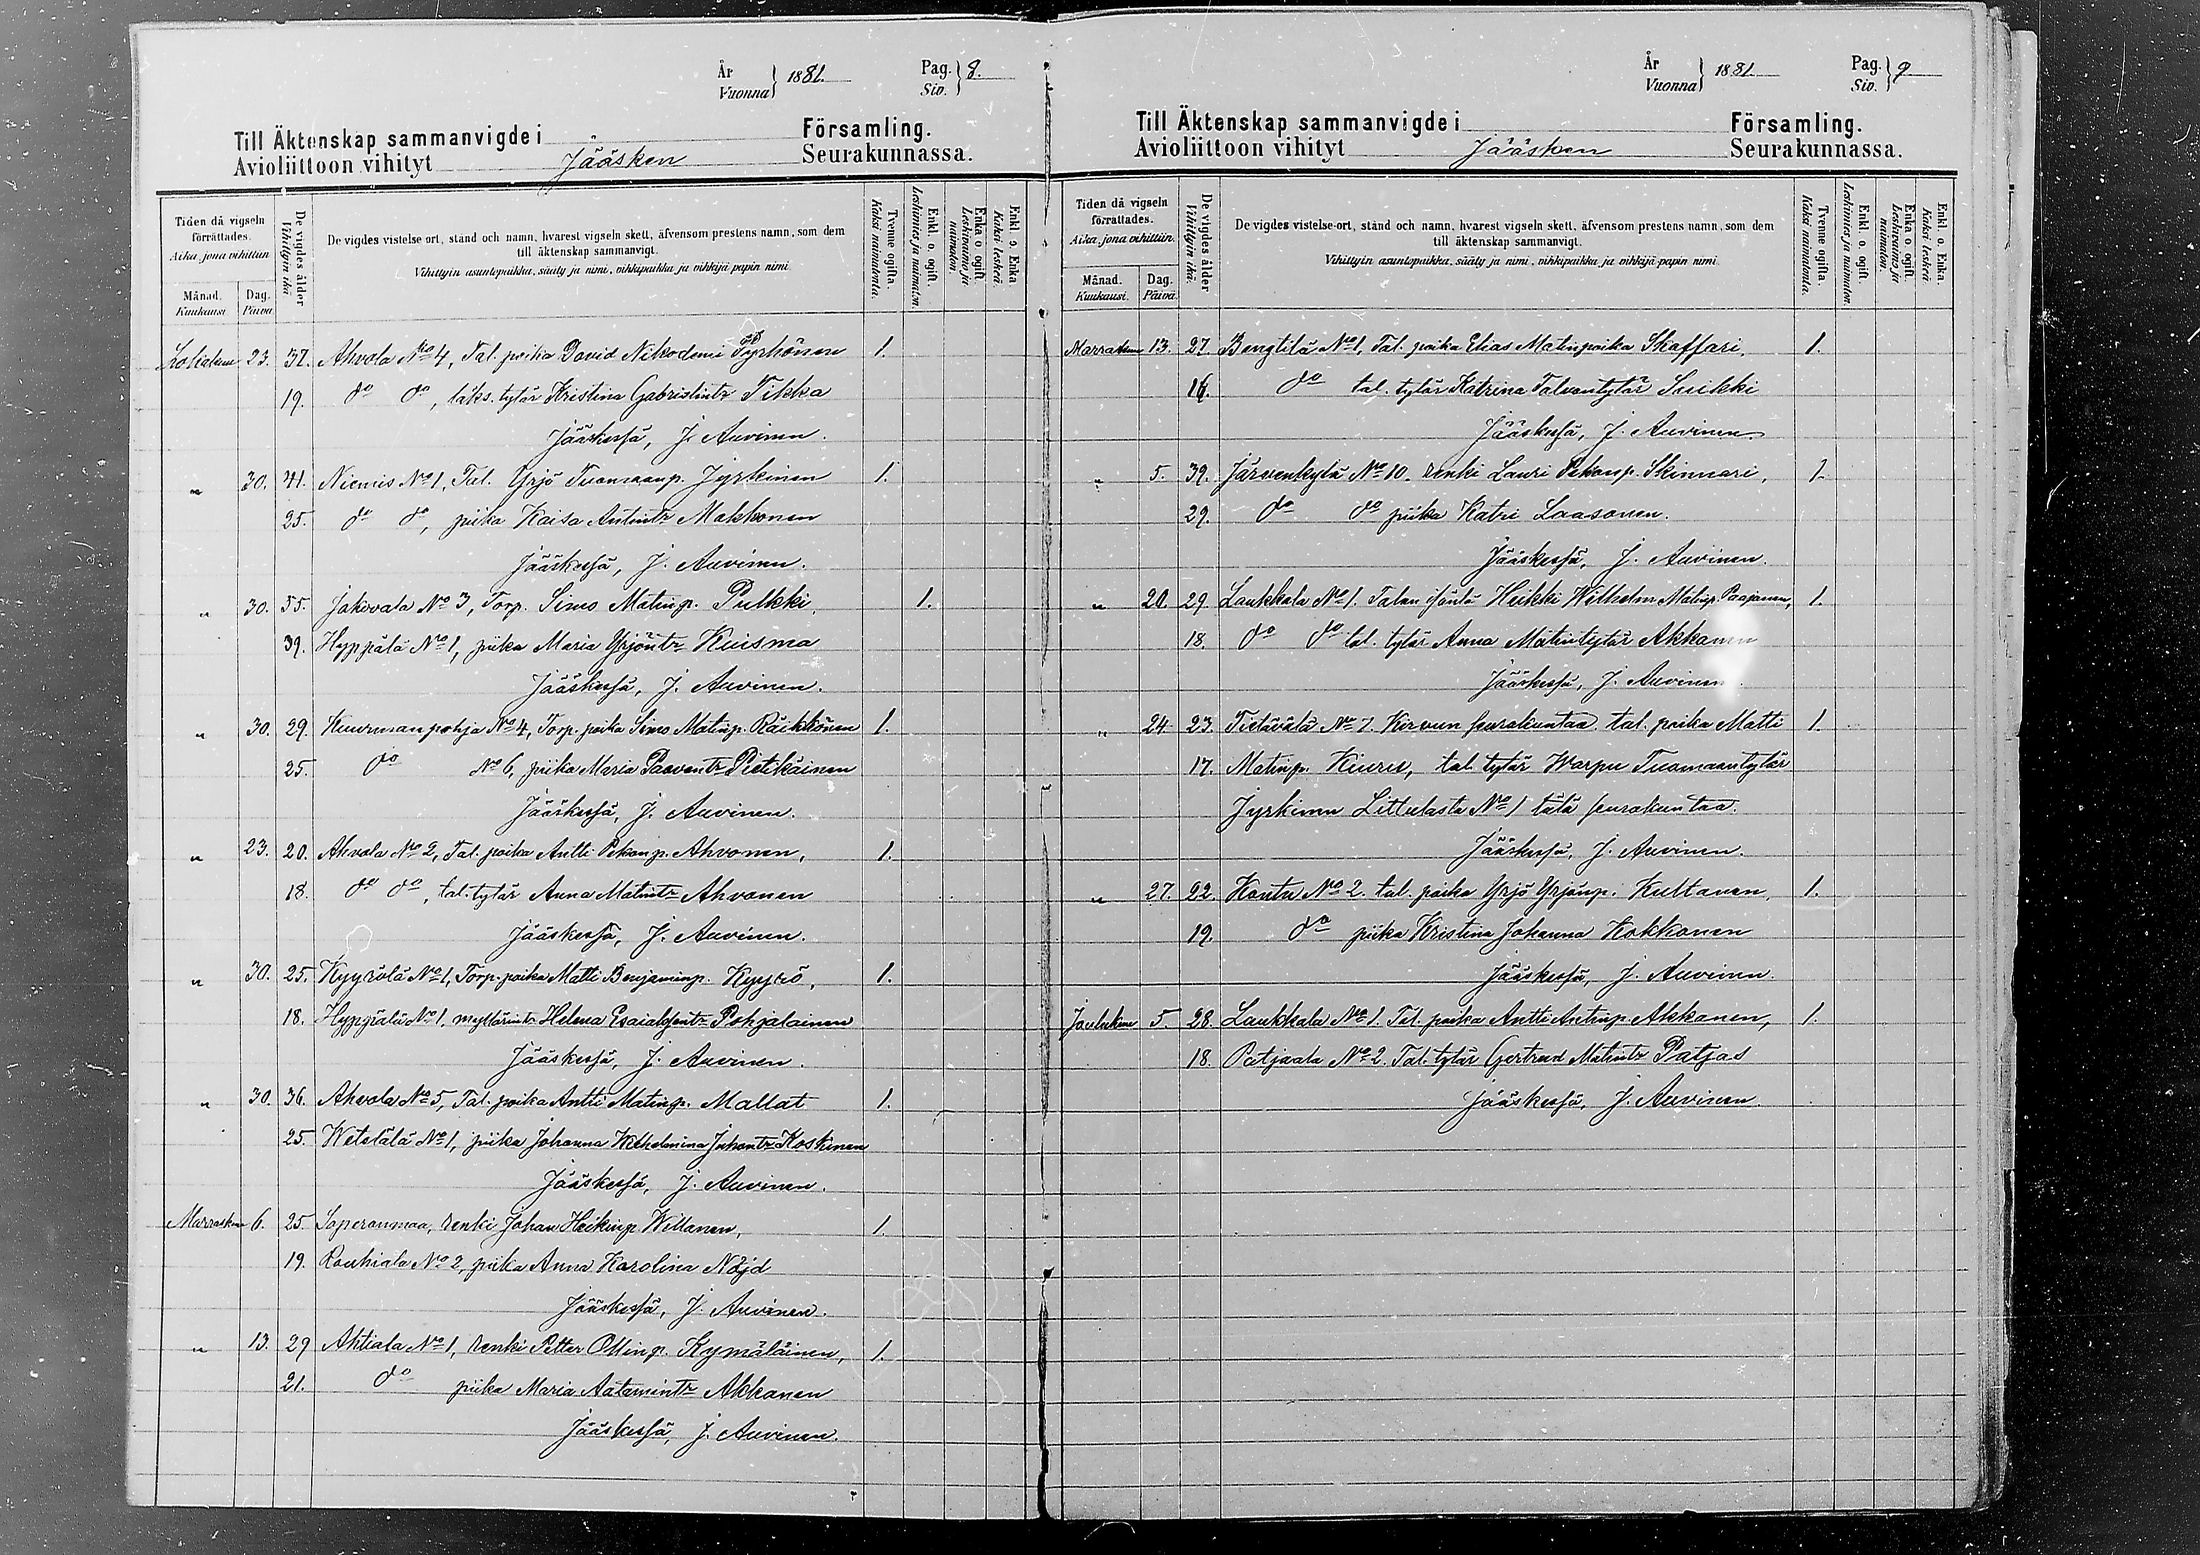 År Vuonna 1881. Pag. Siv. 8.
Till Äktenskap sammanvigde i Församling.
Avioliittoon vihityt Jääsken Seurakunnassa.
Tiden då vigseln förrättades.
Aika, jona vihittiin
Månad. Kuukausi
Dag. Päivä
De vigdes ålder Vihittyin ikä
De vigdes vistelse ort, stånd och namn, hvarest vigseln skett, äfvensom prestens namn, som dem
till äktenskap sammanvigt.
Vihittyin asuntopaikka, sääty ja nimi, vihkipaikka ja vihkijä papin nimi
Tvenne ogifta. Kaksi naimatonta.
Enkl. o. ogift. Leskimies ja naimaton.
Enka o. ogift. Leskivaimo ja naimaton.
Enkl. o. Enka Kaksi leskeä.
Lokakuun 23. 37. Ahvola No 4, Tal. poika David Nikodemi Tyrkönen 1.
19. do do, läks. tytär Kristina Gabrielintr Tikka
Jääskessä, J. Auvinen.
" 30. 41. Niemis No 1, Tal. Yrjö Tuomaanp. Jyrkinen 1.
25. do do, piika Kaisa Antintr Makkonen
Jääskessä, J. Auvinen.
" 30. 55. Jakovala No 3, Torp. Simo Matinp. Pulkki, 1.
39. Hyppälä No 1, piika Maria Yrjöntr Kuisma
Jääskessä, J. Auvinen.
" 30. 29. Kuurmanpohja No 4, Torp. poika Simo Matinp. Räikkönen 1.
25. do No 6, piika Maria Paaventr Pietikäinen
Jääskessä, J. Auvinen.
" 23. 20. Ahvola No 2, Tal. poika Antti Pekanp. Ahvonen, 1.
18. do do, tal. tytär Anna Matintr Ahvonen
Jääskessä, J. Auvinen.
" 30. 25. Kyyrölä No 1, Torp. poika Matti Benjaminp. Kyyrö, 1.
18. Hyppälä No 1, myllärintr Helena Esaiaksentr Pohjalainen
Jääskessä, J. Auvinen.
" 30. 36. Ahvola No 5, Tal. poika Antti Matinp. Mallat 1.
25. Wetelälä No 1, piika Johanna Wilhelmina Juhontr Koskinen
Jääskessä, J. Auvinen.
Marraskuun 6. 25. Saperanmaa, renki Johan Heikinp. Willanen, 1.
19. Rouhiala No 2, piika Anna Karolina Nöjd
Jääskessä, J. Auvinen.
" 13. 29 Ahtiala No 1, renki Petter Ollinp. Kymäläinen, 1.
21. do piika Maria Aatamintr Akkanen
Jääskessä, J. Auvinen.
År Vuonna 1881 Pag. Siv. 9
Till Äktenskap sammanvigde i Församling.
Avioliittoon vihityt Jääsken Seurakunnassa.
Tiden då vigseln förrättades.
Aika, jona vihittiin.
Månad. Kuukausi.
Dag. Päivä.
De vigdes ålder Vihittyin ikä.
De vigdes vistelse-ort, stånd och namn, hvarest vigseln skett, äfvensom prestens namn, som dem
till äktenskap sammanvigt.
Vihittyin asuntopaikka, sääty ja nimi, vihkipaikka ja vihkijä-papin nimi
Tvenne ogifta. Kaksi naimatonta.
Enkl. o. ogift. Leskimies ja naimaton.
Enka o. ogift. Leskivaimo ja naimaton.
Enkl. o. Enka. Kaksi leskeä.
Marraskuun 13. 27. Bengtilä No 1, Tal. poika Elias Matinpoika Skaffari, 1.
16. do tal. tytär Katrina Paavontytär Suikki
Jääskessä, J. Auvinen
" 5. 39. Järvenkylä No 10. renki Lauri Pekanp. Skinnari, 1
29. do do piika Katri Laasonen.
Jääskessä, J. Auvinen.
" 20. 29 Laukkala No 1. Talon isäntä Heikki Wilhelm Matinp. Paajanen, 1.
18. do do tal. tytär Anna Matintytär Akkanen
Jääskessä, J. Auvinen.
" 24 23. Tietävälä No 7. Kirvun seurakuntaa tal. poika Matti 1.
17. Matinp. Kiuru, tal. tytär Warpu Tuomaantytär
Jyrkinen Littulasta No 1 tätä seurakuntaa.
Jääskessä, J. Auvinen.
" 27. 22. Kontu No 2. tal. poika Yrjö Yrjönp. Kuttanen, 1.
19. do piika Kristina Johanna Kokkonen
Jääskessä, J. Auvinen.
Joulukuun 5. 28. Laukkala No 1. Tal. poika Antti Antinp. Akkanen, 1.
18. Patjaala No 2. Tal. tytär Gertrud Matintr Patjas
Jääskessä, J. Auvinen.